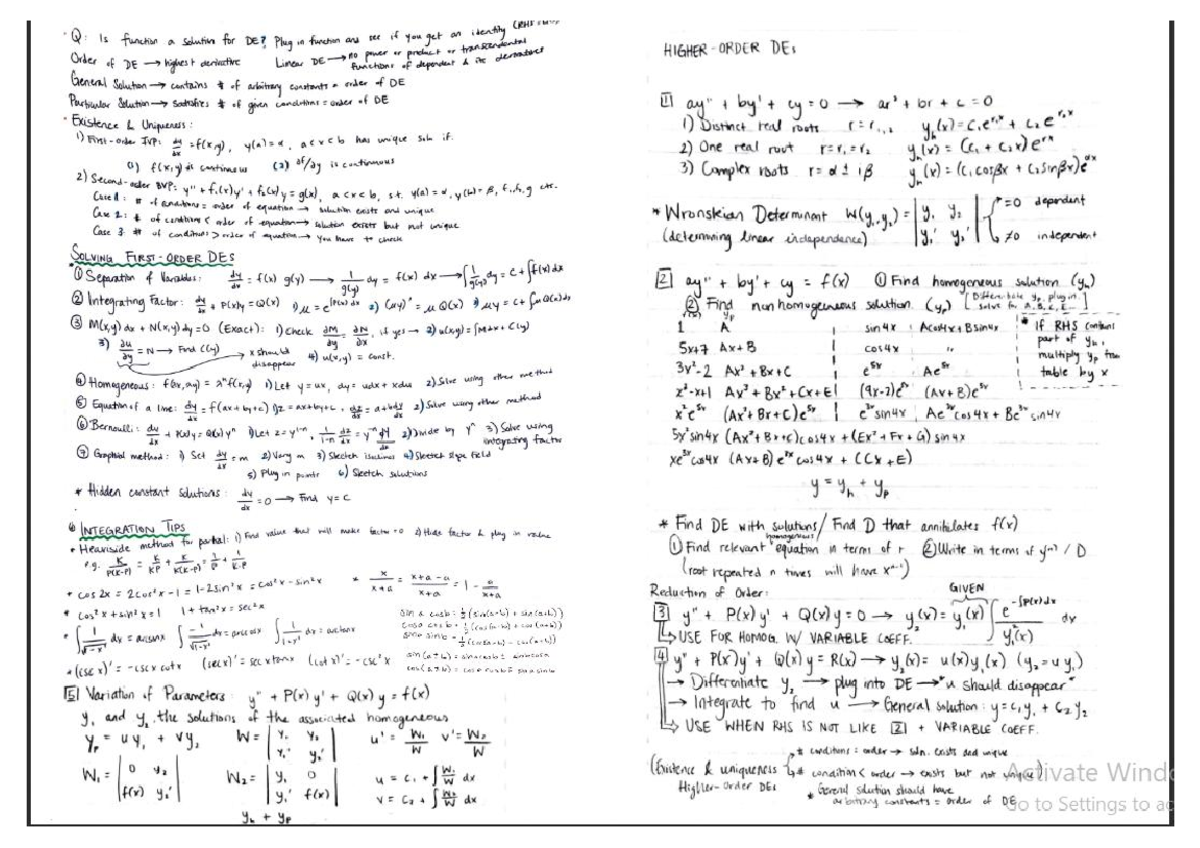 * Q: Is function a solution for DE? Plug in function and see if you get an identity (RHS
Order of DE → highest derivative Linear DE → no power or product or transcendental functions of dependent & its derivatives
General Solution → contains # of arbitrary constants = order of DE
Particular Solution → satisfies # of given conditions = order of DE
* Existence & Uniqueness:
1) First-order IVP: dy/dx = f(x,y), y(a)=α, a<x<b has unique soln if:
(1) f(x,y) is continuous (2) ∂f/∂y is continuous
2) Second-order BVP: y'' + f₁(x)y' + f₂(x)y = g(x), a<x<b, s.t. y(a)=α, y(b)=β, f₁,f₂,g cts.
Case 1: # of conditions = order of equation → solution exists and unique
Case 2: # of conditions < order of equation → solution exists but not unique
Case 3: # of conditions > order of equation → you have to check
SOLVING FIRST-ORDER DEs
① Separation of Variables: dy/dx = f(x) g(y) → 1/g(y) dy = f(x) dx → ∫1/g(y) dy = C + ∫f(x)dx
② Integrating Factor: dy/dx + P(x)y = Q(x) 1) μ = e^∫P(x)dx 2) (μy)' = μ Q(x) 3) μy = C + ∫μQ(x)dx
③ M(x,y) dx + N(x,y) dy = 0 (Exact): 1) Check ∂M/∂y = ∂N/∂x, if yes → 2) u(x,y) = ∫Mdx + C(y)
3) ∂u/∂y = N → Find C(y) → x should disappear 4) u(x,y) = const.
④ Homogeneous: 1) Let y = ux, dy = udx + xdu 2) Solve using other method
⑤ Equation of a line: dy/dx = f(ax+by+c) 1) z = ax+by+c, dz/dx = a+b dy/dx 2) Solve using other method
⑥ Bernoulli: dy/dx + P(x)y = Q(x)yⁿ 1) Let z = y¹⁻ⁿ, 1/(1-n) dz/dx = y⁻ⁿ dy/dx 2) Divide by yⁿ 3) Solve using integrating factor
⑦ Graphical method: 1) Set dy/dx = m 2) Vary m 3) Sketch isoclines 4) Sketch slope field
5) Plug in points 6) Sketch solutions
* Hidden constant solutions: dy/dx = 0 → Find y = C
INTEGRATION TIPS
* Heaviside method for partial: 1) Find value that will make factor = 0 2) Hide factor & plug in value
e.g.
* cos 2x = 2cos²x - 1 = 1 - 2sin²x = cos²x - sin²x * x/(x+a) = (x+a-a)/(x+a) = 1 - a/(x+a)
* cos²x + sin²x = 1 1 + tan²x = sec²x
* (csc x)' = -csc x cot x (sec x)' = sec x tan x (cot x)' = -csc²x
[5] Variation of Parameters: y'' + P(x) y' + Q(x) y = f(x)
y₁ and y₂ the solutions of the associated homogeneous
yₚ = u y₁ + v y₂ W = | y₁ y₂ ; y₁' y₂' | u' = W₁/W v' = W₂/W
W₁ = | 0 y₂ ; f(x) y₂' | W₂ = | y₁ 0 ; y₁' f(x) | u = C₁ + ∫W₁/W dx
v = C₂ + ∫W₂/W dx
yₕ + yₚ
HIGHER-ORDER DEs
[1] ay'' + by' + cy = 0 → ar² + br + c = 0
1) Distinct real roots r = r₁,₂ yₕ(x) = C₁e^r₁x + C₂e^r₂x
2) One real root r = r₁ = r₂ yₕ(x) = (C₁ + C₂x)e^rx
3) Complex roots r = α ± iβ yₕ(x) = (C₁cosβx + C₂sinβx)e^αx
* Wronskian Determinant W(y₁,y₂) = | y₁ y₂ ; y₁' y₂' | =0 dependent
(determining linear independence) ≠0 independent
[2] ay'' + by' + cy = f(x) ① Find homogeneous solution (yₕ)
② Find nonhomogeneous solution (yₚ) [Differentiate yₚ, plug in, solve for A, B, C, E...]
yₚ
1 A sin4x Acos4x + Bsin4x
5x+7 Ax+B cos4x "
3x²-2 Ax²+Bx+C e^5x Ae^5x
x³-x+1 Ax³+Bx²+Cx+E (9x-2)e^5x (Ax+B)e^5x
x²e^5x (Ax²+Bx+C)e^5x e^3x sin4x Ae^3x cos4x + Be^3x sin4x
5x²sin4x (Ax²+Bx+C)cos4x + (Ex²+Fx+G)sin4x
xe^3x cos4x (Ax+B)e^3x cos4x + (Cx+E)
* If RHS contains part of yₕ, multiply yₚ from table by x
y = yₕ + yₚ
* Find DE with solutions / Find D that annihilates f(x)
① Find relevant homogeneous equation in terms of r ② Write in terms of y⁽ⁿ⁾ / D
(root repeated n times will have xⁿ⁻¹)
Reduction of Order: GIVEN
[3] y'' + P(x)y' + Q(x)y = 0 → y₂(x) = y₁(x) ∫ e^-∫P(x)dx / y₁²(x) dx
↳ USE FOR HOMOG. W/ VARIABLE COEFF.
[4] y'' + P(x)y' + Q(x)y = R(x) → y₂(x) = u(x)y₁(x) (y₂ = u y₁)
→ Differentiate y₂ → plug into DE → *u should disappear*
→ Integrate to find u → General solution: y = C₁y₁ + C₂y₂
↳ USE WHEN RHS IS NOT LIKE [2] + VARIABLE COEFF.
(Existence & uniqueness Higher-Order DEs
# conditions = order → soln. exists and unique
# conditions < order → exists but not unique)
* General solution should have arbitrary constants = order of DE
Activate Windo
Go to Settings to ac